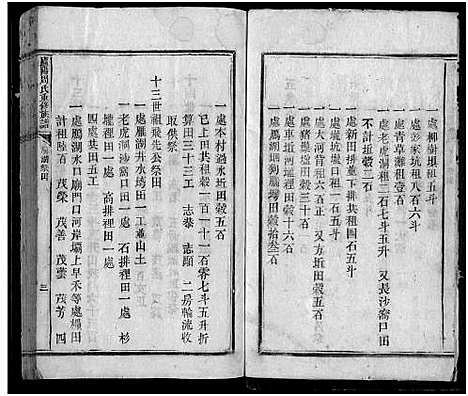 一處柳樹垻租五斗
一處彭家坑租八石六斗
一處青草灘租壹石
一處老虎洞租二石七斗五升　又長沙湾口田
不計坵穀二石
一處新田排壟下排共租園石五斗
一處坑壠口租一石五斗
一處大河背租六石正　又方坵田穀五石
一處豬矢壠田穀五石
一處車坵河埂裡田穀十六石
一處鴈湖坳狗扇墈田穀拾叁石
一處本村過水坵田穀五石
已上田共租穀一百一十一石零七斗五升折
算田三十三工　志恭　志顯　二房輪流收
取供祭
十三世祖飛先公祭田
一處雁湖井水垮田一工並山土
一老虎洞沙窩口田一處　石排裡田一處　杉
樓裡田一處　高排裡田一處
四處共田五工
一處鴈湖水口廟門口河岸壩上早禾等處糧田
計租陸百　茂榮　茂善　茂藝　茂芳　四
周氏重修族譜
祭田
三